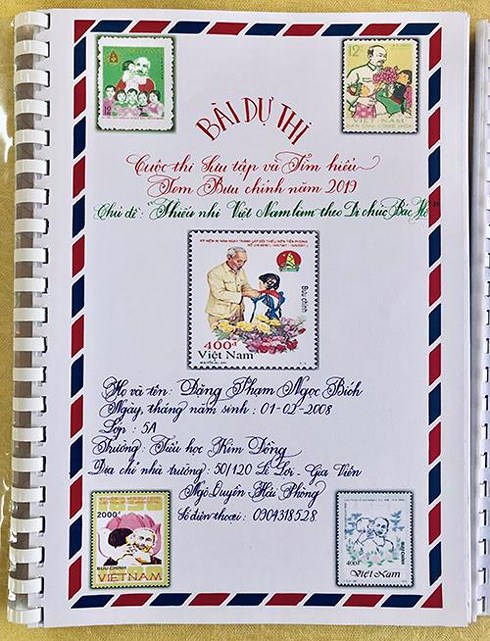 BÀI DỰ THI
Cuộc thi Sưu tập và Tìm hiểu
Tem Bưu chính năm 2019
Chủ đề: "Thiếu nhi Việt Nam làm theo Di chúc Bác Hồ"
12
12
VIỆT NAM
Bưu chính
400đ
Việt Nam
Họ và tên: Đặng Phạm Ngọc Bích
Ngày, tháng năm sinh: 01-02-2008
Lớp: 5A
Trường: Tiểu học Kim Đồng
Địa chỉ nhà trường: 50/120 Lê Lợi - Gia Viên
Ngô Quyền Hải Phòng
Số điện thoại: 0904318528
2000đ
BƯU CHÍNH
VIETNAM
400đ
Việt Nam